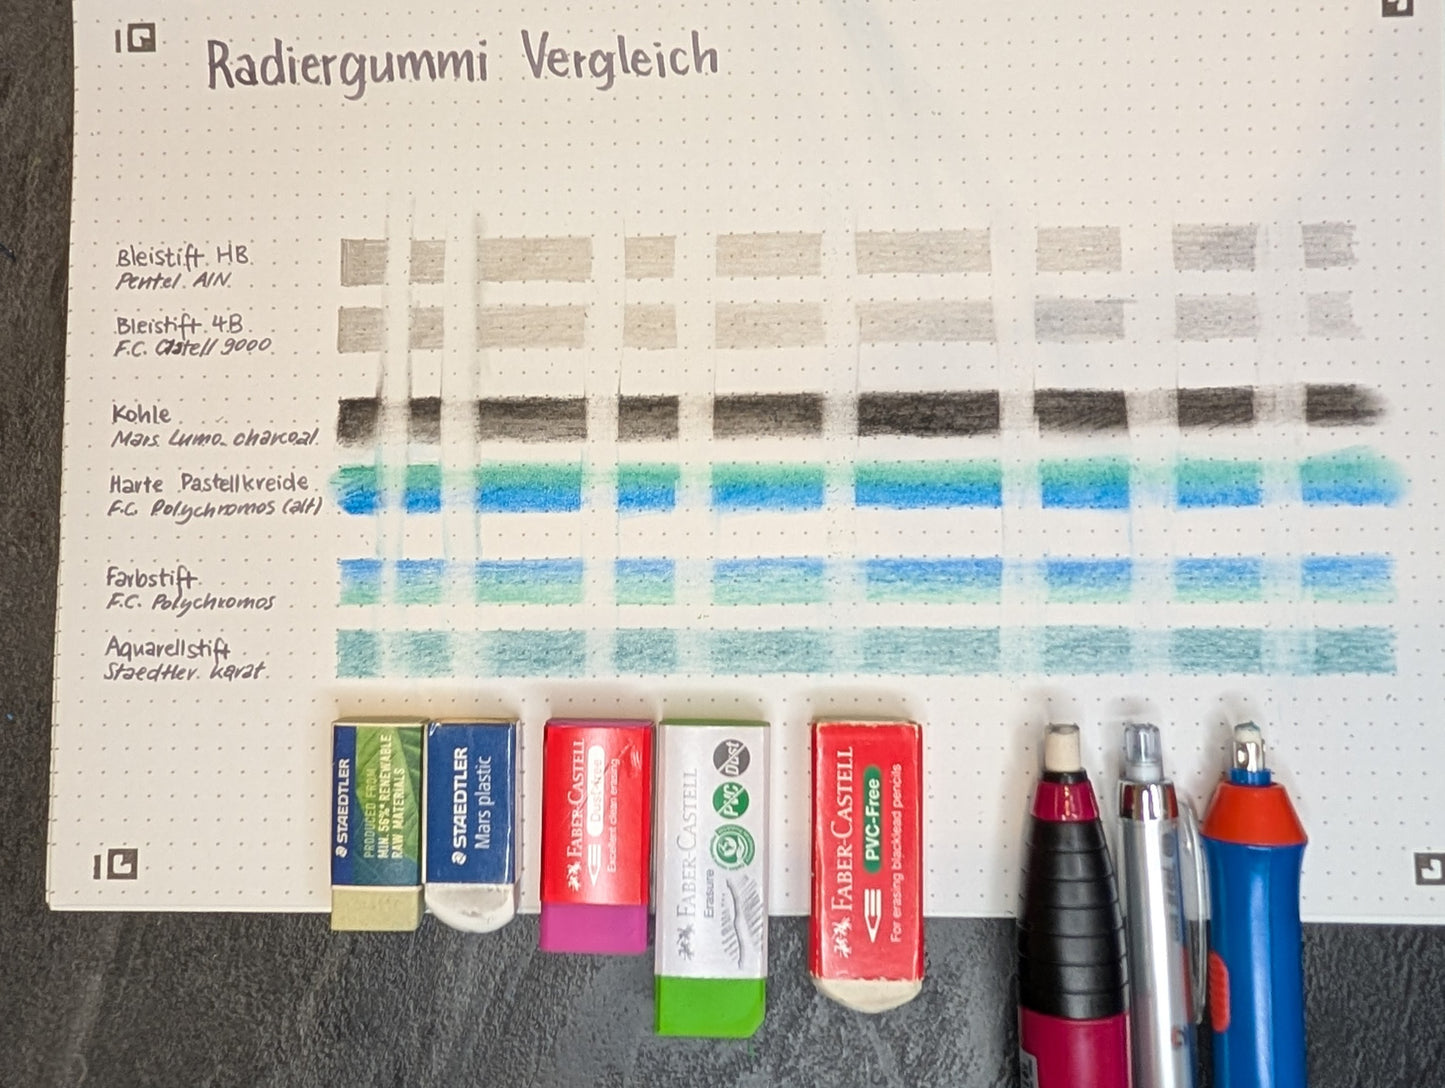 Radiergummi Vergleich
Bleistift HB
Pentel AIN
Bleistift 4B
F.C. Castell 9000
Kohle
Mars Lumo. charcoal
Harte Pastellkreide
F.C. Polychromos (alt)
Farbstift
F.C. Polychromos
Aquarellstift
Staedtler karat
STAEDTLER
PRODUCED FROM
MIN. 56%* RENEWABLE
RAW MATERIALS
STAEDTLER
Mars plastic
FABER-CASTELL
Dust-Free
Excellent clean erasing
FABER-CASTELL
Erasure
PVC
Dust
FABER-CASTELL
PVC-Free
For erasing blacklead pencils